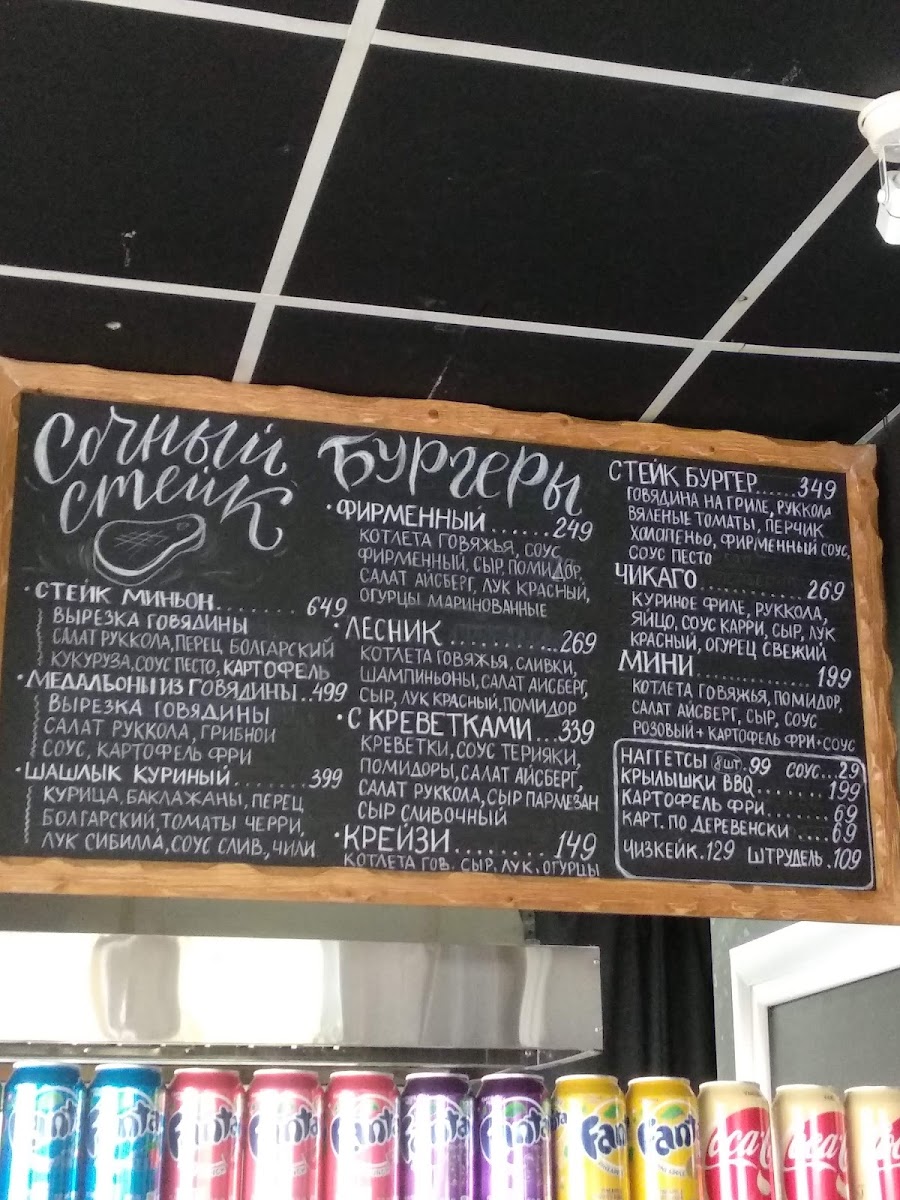 Сочный
стейк
· СТЕЙК МИНЬОН.......... 649
ВЫРЕЗКА ГОВЯДИНЫ
САЛАТ РУККОЛА, ПЕРЕЦ БОЛГАРСКИЙ
КУКУРУЗА, СОУС ПЕСТО, КАРТОФЕЛЬ
· МЕДАЛЬОНЫ ИЗ ГОВЯДИНЫ..499
ВЫРЕЗКА ГОВЯДИНЫ
САЛАТ РУККОЛА, ГРИБНОЙ
СОУС, КАРТОФЕЛЬ ФРИ
· ШАШЛЫК КУРИНЫЙ.......... 399
КУРИЦА, БАКЛАЖАНЫ, ПЕРЕЦ
БОЛГАРСКИЙ, ТОМАТЫ ЧЕРРИ,
ЛУК СИБИЛЛА, СОУС СЛИВ., ЧИЛИ
Бургеры
· ФИРМЕННЫЙ.......249
КОТЛЕТА ГОВЯЖЬЯ, СОУС
ФИРМЕННЫЙ, СЫР, ПОМИДОР,
САЛАТ АЙСБЕРГ, ЛУК КРАСНЫЙ,
ОГУРЦЫ МАРИНОВАННЫЕ
· ЛЕСНИК.............269
КОТЛЕТА ГОВЯЖЬЯ, СЛИВКИ,
ШАМПИНЬОНЫ, САЛАТ АЙСБЕРГ,
СЫР, ЛУК КРАСНЫЙ, ПОМИДОР
· С КРЕВЕТКАМИ...339
КРЕВЕТКИ, СОУС ТЕРИЯКИ,
ПОМИДОРЫ, САЛАТ АЙСБЕРГ,
САЛАТ РУККОЛА, СЫР ПАРМЕЗАН
СЫР СЛИВОЧНЫЙ
· КРЕЙЗИ.........149
КОТЛЕТА ГОВ. СЫР, ЛУК, ОГУРЦЫ
СТЕЙК БУРГЕР......349
ГОВЯДИНА НА ГРИЛЕ, РУККОЛА
ВЯЛЕНЫЕ ТОМАТЫ, ПЕРЧИК
ХАЛАПЕНЬО, ФИРМЕННЫЙ СОУС,
СОУС ПЕСТО
ЧИКАГО..............269
КУРИНОЕ ФИЛЕ, РУККОЛА,
ЯЙЦО, СОУС КАРРИ, СЫР, ЛУК
КРАСНЫЙ, ОГУРЕЦ СВЕЖИЙ
МИНИ...............199
КОТЛЕТА ГОВЯЖЬЯ, ПОМИДОР,
САЛАТ АЙСБЕРГ, СЫР, СОУС
РОЗОВЫЙ + КАРТОФЕЛЬ ФРИ + СОУС
НАГГЕТСЫ 8 шт. 99 СОУС...29
КРЫЛЫШКИ BBQ........199
КАРТОФЕЛЬ ФРИ........69
КАРТ. ПО ДЕРЕВЕНСКИ....69
ЧИЗКЕЙК.129 ШТРУДЕЛЬ.109
Fanta Fanta Fanta Fanta Fanta Fanta Fanta Fanta Fanta Coca-